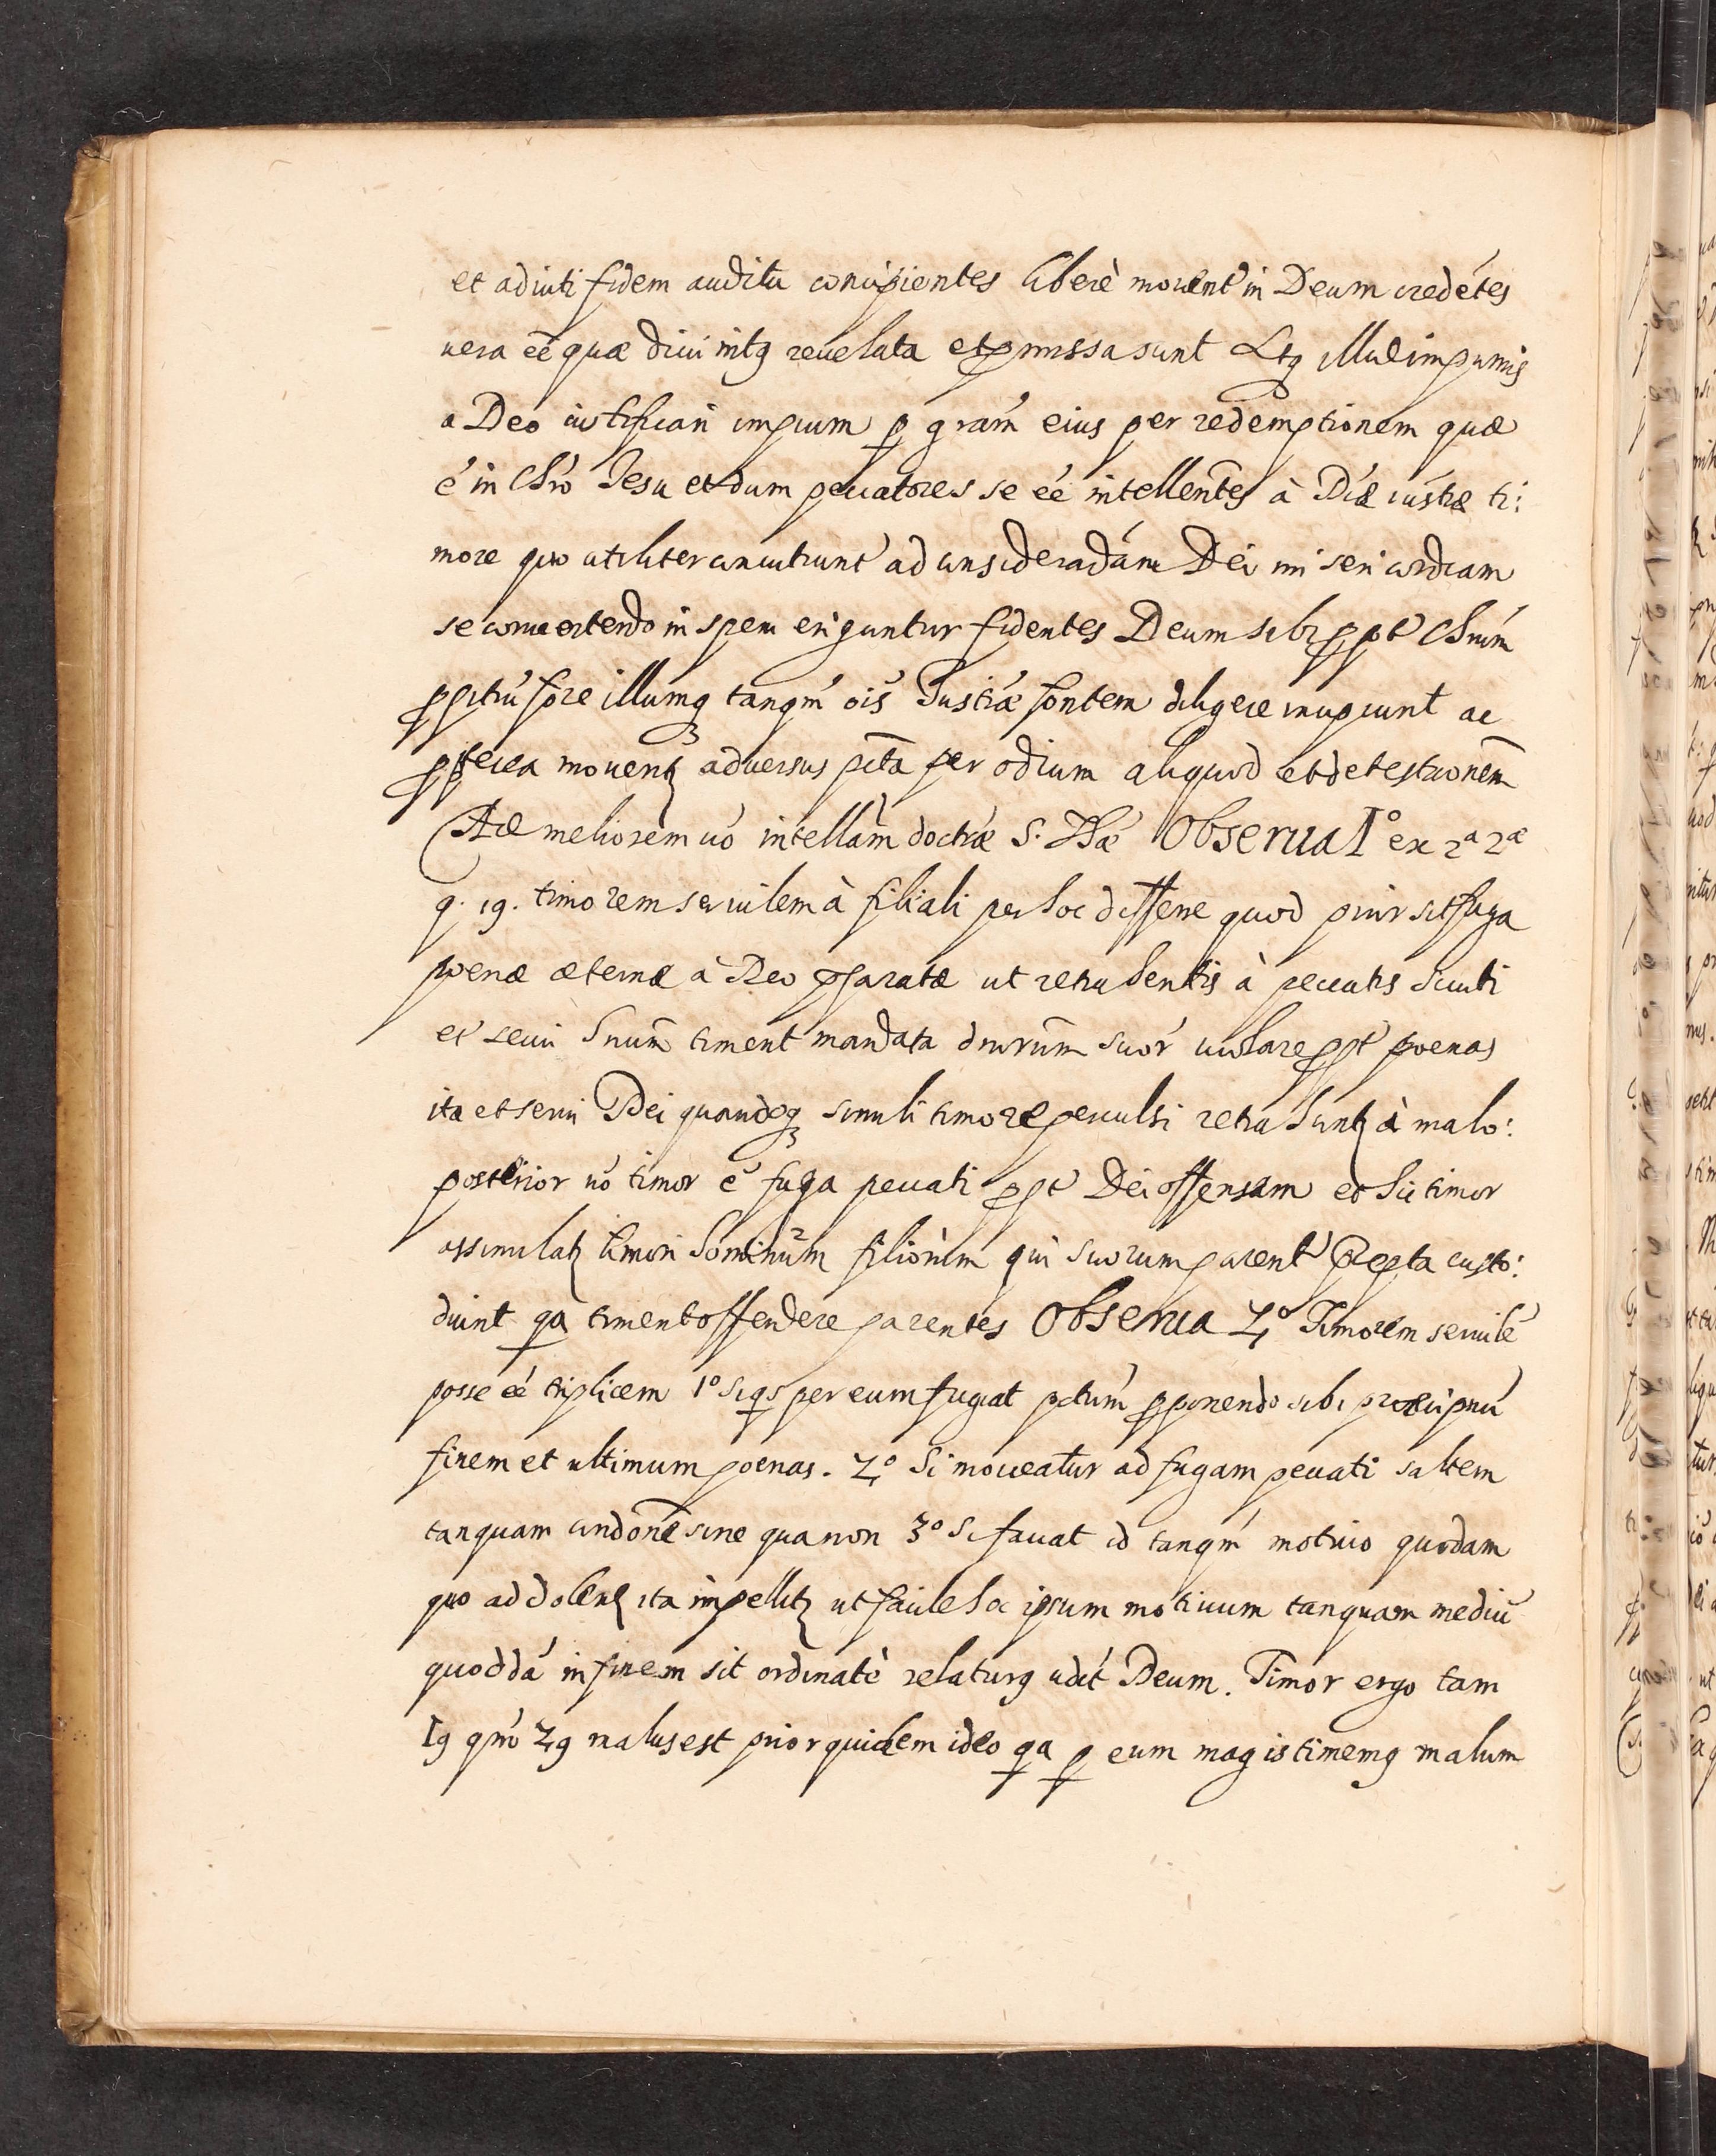 et adiuti fidem auditu concipientes liberè movent' in Deum credétes
vera eē quae divinitq revelata et pmissa sunt Atq illud imprimis
a Deo iustificari impium p grām eius per redemptionem quae
é in Chrō Jesu et dum peccatores se eé intellentes à Diae iústiae ti:
more quo utiliter concutiunt' ad considerādam Dei misericordiam
se convertendo in spem eriguntur fidentes Deum sibi ppt' Chrum
ppitiú fore illumq tanqm oīs Iustiae fontem diligere incipiunt ac
pptereà movent adversus pcta per odium aliquod et detestaonem
Ad meliorem vó intellām doctrae S. Thae Observa 1º ex 2ª 2ae
q. 19. timorem servilem à filiali per hoc differre quod prior sit fuga
poenae aeternae à Deo pparatae ut retrahentis à peccatis Sicuti
et servi hnum timent mandata dnorum suor' violare ppt' poenas
ita et servi Dei quandoq simili timore perculsi retrahunt à malo:
posterior vó timor é fuga peccati ppt' Dei offensam et hic timor
assimilat timori hominum filiorum qui suorum parent' Pcepta custo:
diunt qa timent offendere parentes Observa 2º Timorem servilé
posse eé triplicem 1º si qs per eum fugiat pctum pponendo sibi praecipuú
finem et ultimum poenas. 2º Si moveatur ad fugam peccati saltem
tanquam condone sine qua non 3º Si faciat id tanqm motivo quodam
quo ad dolend ita impellit ut facile hoc ipsum motivum tanquam mediū
quoddá in finem sit ordinatè relaturq Deum. Timor ergo tam
1q qm 2q malus est prior quidem ideo qa p eum magis timemq malum